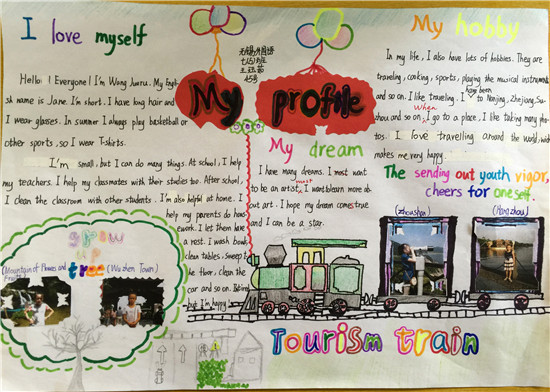 I love myself
Hello! Everyone! I'm Wang Junru. My Engli-
sh name is Jane. I'm short. I have long hair and
I wear glasses. In summer I always play basketball or
other sports, so I wear T-shirts.
I'm small, but I can do many things. At school, I help
my teachers. I help my classmates with their studies too. After school,
I clean the classroom with other students. I'm also helpful at home. I
help my parents do hous-
ework. I let them have
a rest. I wash bowls
clean tables. Sweep
the floor, clean the
car and so on.
but I'm happy
grow
up
tree
(Mountain of Flowers and
Fruits)
(Wu zhen Town)
My profile
My dream
I have many dreams. I most want
to be an artist. I want learn more ab-
out art. I hope my dream comes true
and I can be a star.
My hobby
In my life, I also have lots of hobbies. They are
traveling, cooking, sports, playing the musical instrument
and so on. I like traveling. I have been to Nanjing, Zhejiang, Su-
zhou and so on. When I go to a place, I like taking many pho-
tos. I love travelling around the world, with
makes me very happy.
The sending out youth vigor,
cheers for oneself.
(Hangzhou)
Tourism train